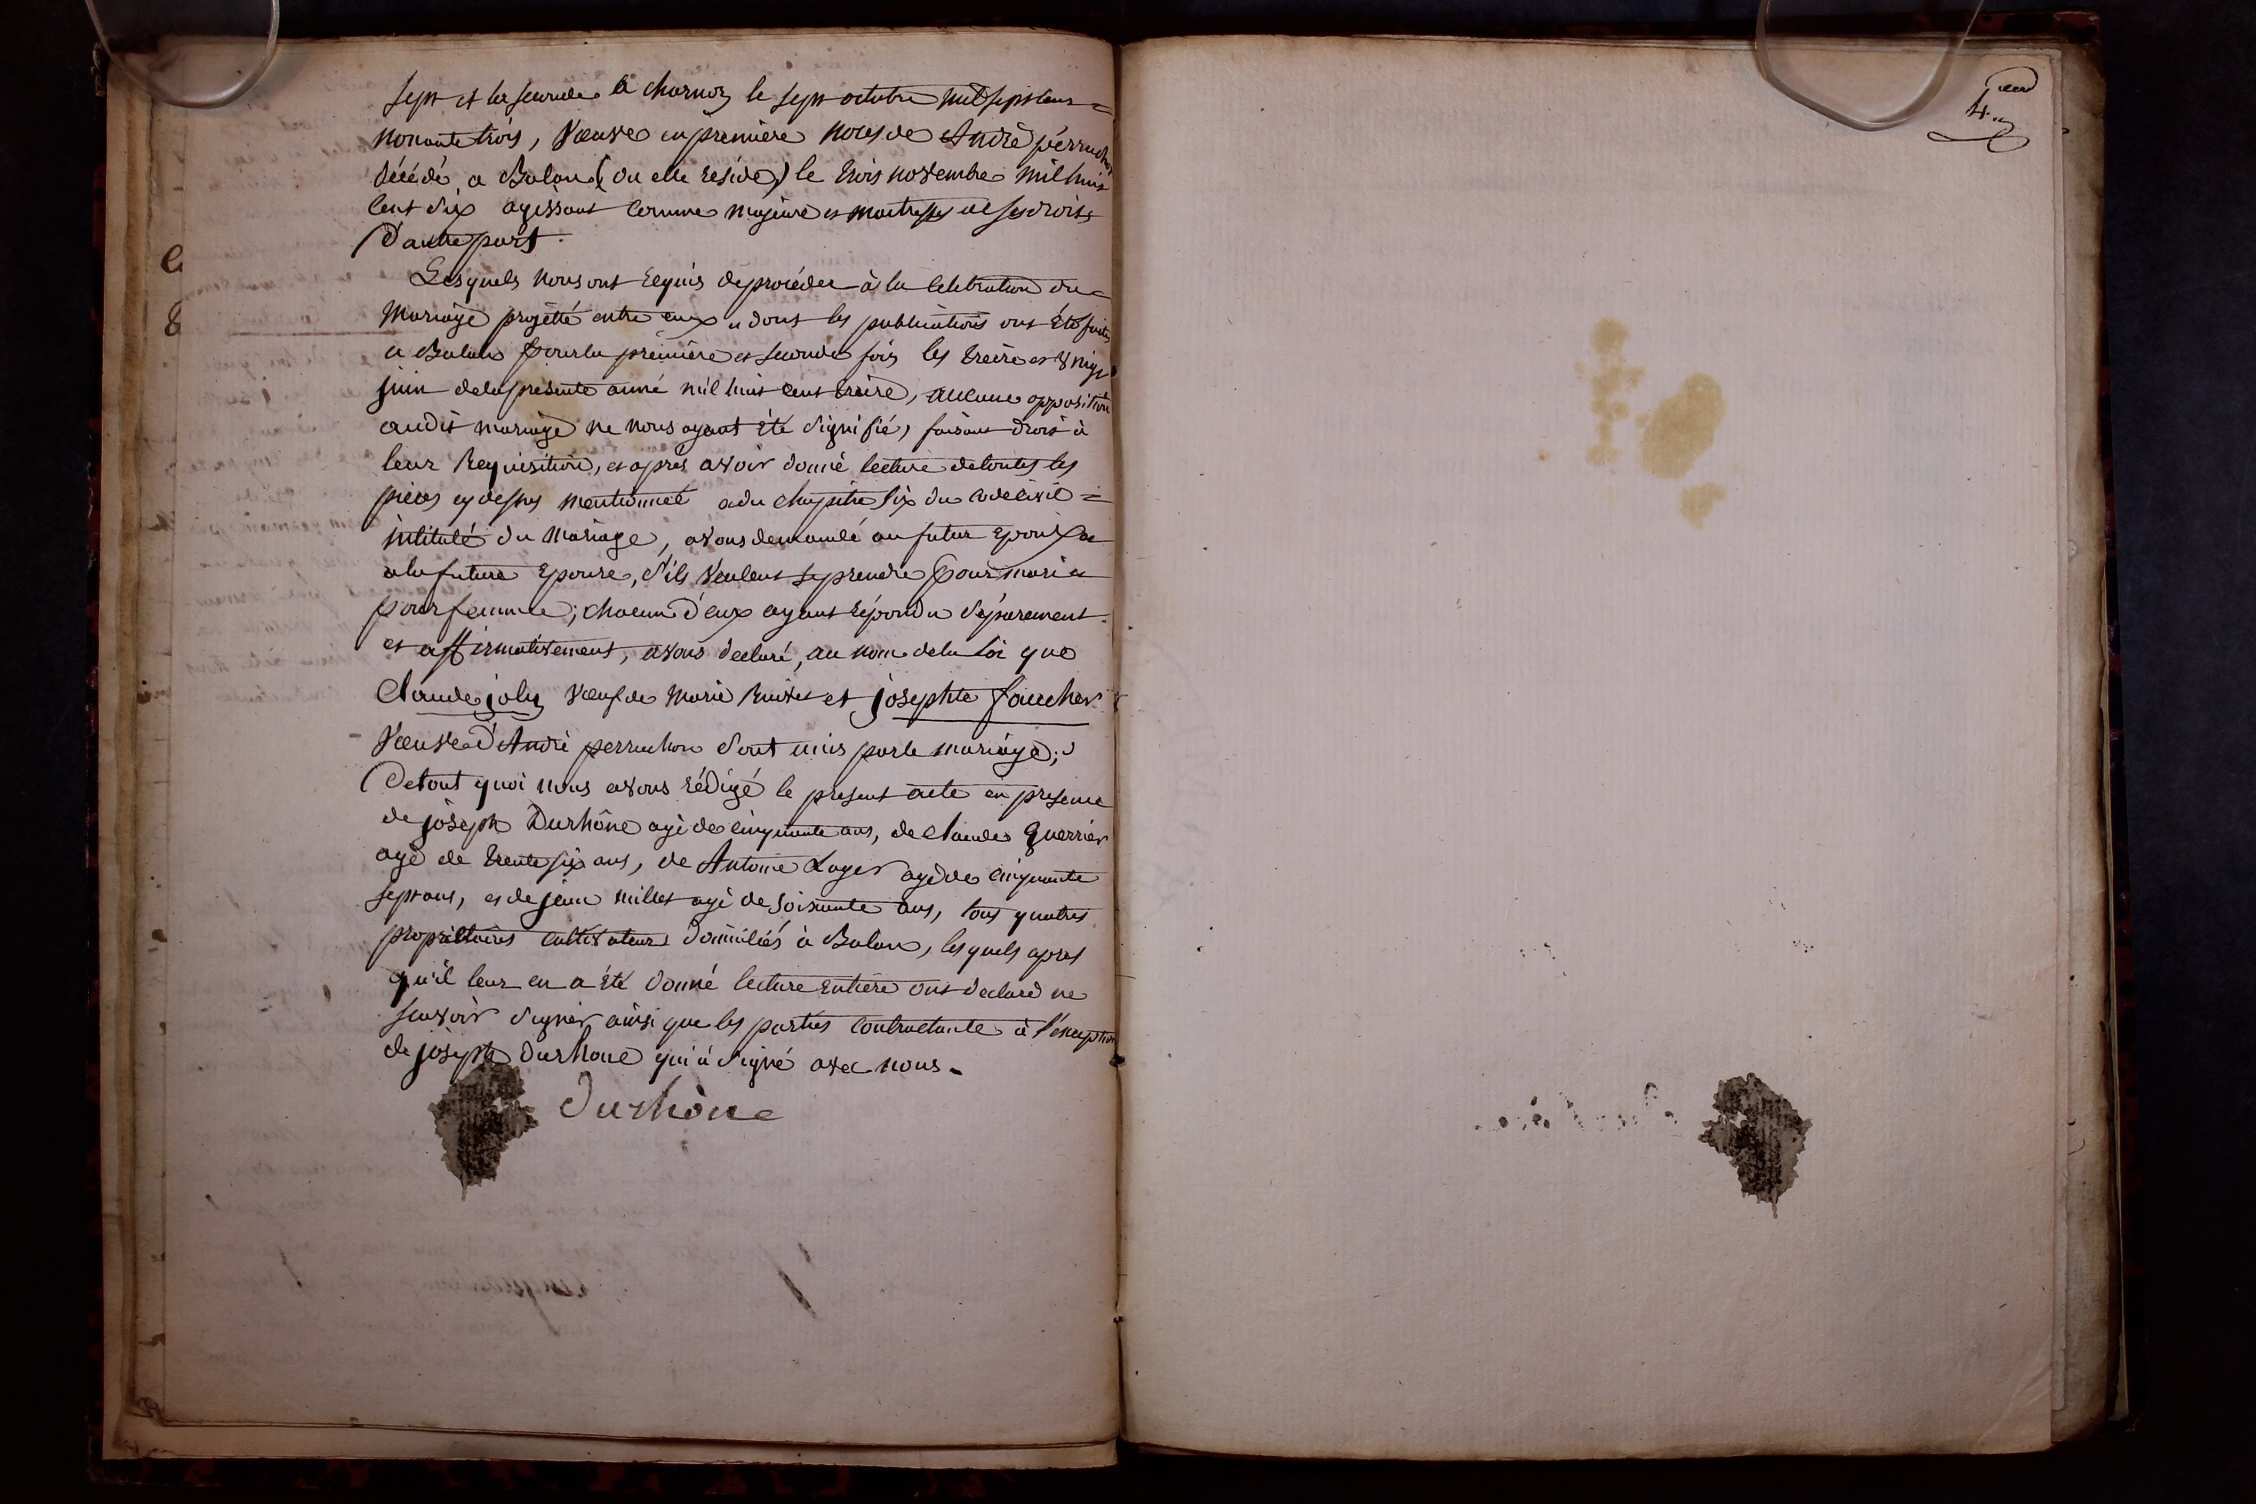 sept et la seconde a charnoz le sept octobre mil sept cens =
nonante trois, Vœuve en première noces de André pérruchon
décédé a Balan (ou elle reside,) le trois novembre mil huit
cent dix agissant comme majeure et maitresse de ses droits
d'autre part.
Lesquels nous ont requis de procéder à la celebration du
mariage projetté entre eux et dont les publications ont été faites
a Balan pour la première et seconde fois les treize et vingt
juin de la présente anné mil huit cent treize, aucune opposition
audit mariage ne nous ayant été signifié, faisant droit à
leur Requisition, et après avoir donné lecture de toutes les
pièces cy dessus mentionneé et du chapitre six du code civil =
intitulé du Mariage, avons demandé au futur Epoux et
a la future Epouse, s'ils veulent se prendre pour mari et
pour femme; chacun d'eux ayant répondu séparement
et affirmativement, avons declaré, au nom de la Loi que
Claude joly Vœuf de Marie et josephte faucher
Vœuve d'André perruchon sont unis par le mariage;
De tout quoi nous avons rédigé le present acte en presence
de jòseph Durhône agé de cinquante ans, de claude Guerrier
agé de trente six ans, de Antoine Loger agé de cinquante
sept ans, et de jean millet agé de soixante ans, tous quatres
propriétaires cultivateurs domiciliés à Balan, lesquels apres
qu'il leur en a été donné lecture entiere ont declaré ne
scavoir signer ainsi que les parties contractante à l'éxception
de jòseph durhone qui à signé avec nous.
durhône
4.